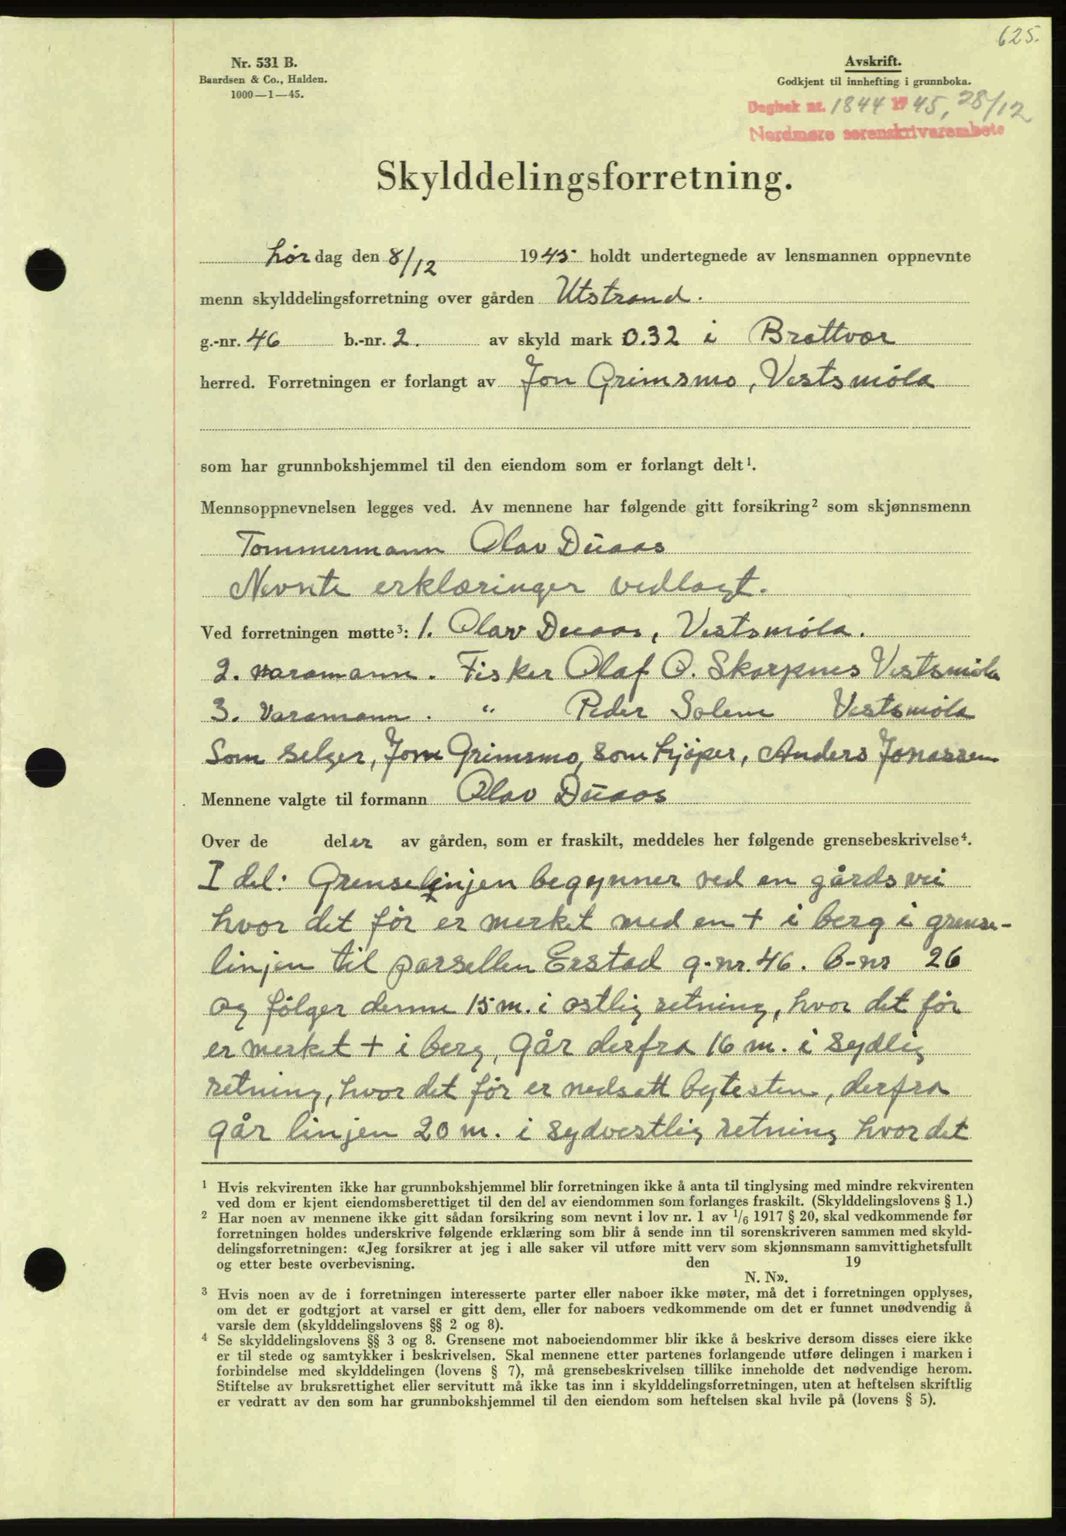 625.
Nr. 531 B.
Baardsen & Co., Halden.
1000—1—45.
Avskrift.
Godkjent til innhefting i grunnboka.
Dagbok nr. 1844 1945, 28/12
Nordmøre sorenskrivarembete
Skylddelingsforretning.
Lørdag den 8/12 1945 holdt undertegnede av lensmannen oppnevnte
menn skylddelingsforretning over gården Utstrand.
g.-nr. 46 b.-nr. 2. av skyld mark 0.32 i Brattvær
herred. Forretningen er forlangt av Jon Grimsmo, Vestsmøla
som har grunnbokshjemmel til den eiendom som er forlangt delt¹.
Mennsoppnevnelsen legges ved. Av mennene har følgende gitt forsikring² som skjønnsmenn
Tømmermann Olav Duaas
Nevnte erklæringer vedlagt.
Ved forretningen møtte³: 1. Olav Duaas, Vestsmøla.
2. varamann. Fisker Olaf O. Skarpnes Vestsmøla
3. Varamann. " Peder Solem Vestsmøla
Som selger, Jon Grimsmo, som kjøper, Anders Jonassen
Mennene valgte til formann Olav Duaas
Over de deler av gården, som er fraskilt, meddeles her følgende grensebeskrivelse⁴.
I del: Grenselinjen begynner ved en gårdsvei
hvor det før er merket med en + i berg i grense-
linjen til parsellen Erstad g-nr. 46. b-nr 26
og følger denne 15 m. i østlig retning, hvor det før
er merket + i berg, går derfra 16 m. i sydlig
retning, hvor det før er nedsatt bytesten, derfra
går linjen 20 m. i sydvestlig retning hvor det
¹ Hvis rekvirenten ikke har grunnbokshjemmel blir forretningen ikke å anta til tinglysing med mindre rekvirenten
ved dom er kjent eiendomsberettiget til den del av eiendommen som forlanges fraskilt. (Skylddelingslovens § 1.)
² Har noen av mennene ikke gitt sådan forsikring som nevnt i lov nr. 1 av 1/6 1917 § 20, skal vedkommende før
forretningen holdes underskrive følgende erklæring som blir å sende inn til sorenskriveren sammen med skyld-
delingsforretningen: «Jeg forsikrer at jeg i alle saker vil utføre mitt verv som skjønnsmann samvittighetsfullt
og etter beste overbevisning. den 19
N. N».
³ Hvis noen av de i forretningen interesserte parter eller naboer ikke møter, må det i forretningen opplyses,
om det er godtgjort at varsel er gitt dem, eller for naboers vedkommende om det er funnet unødvendig å
varsle dem (skylddelingslovens §§ 2 og 8).
⁴ Se skylddelingslovens §§ 3 og 8. Grensene mot naboeiendommer blir ikke å beskrive dersom disses eiere ikke
er til stede og samtykker i beskrivelsen. Skal mennene etter partenes forlangende utføre delingen i marken i
forbindelse med skylddelingen (lovens § 7), må grensebeskrivelsen tillike inneholde det nødvendige herom.
Stiftelse av bruksrettighet eller servitutt må ikke tas inn i skylddelingsforretningen, uten at heftelsen skriftlig
er vedratt av den som har grunnbokshjemmel til den eiendom som heftelsen skal hvile på (lovens § 5).